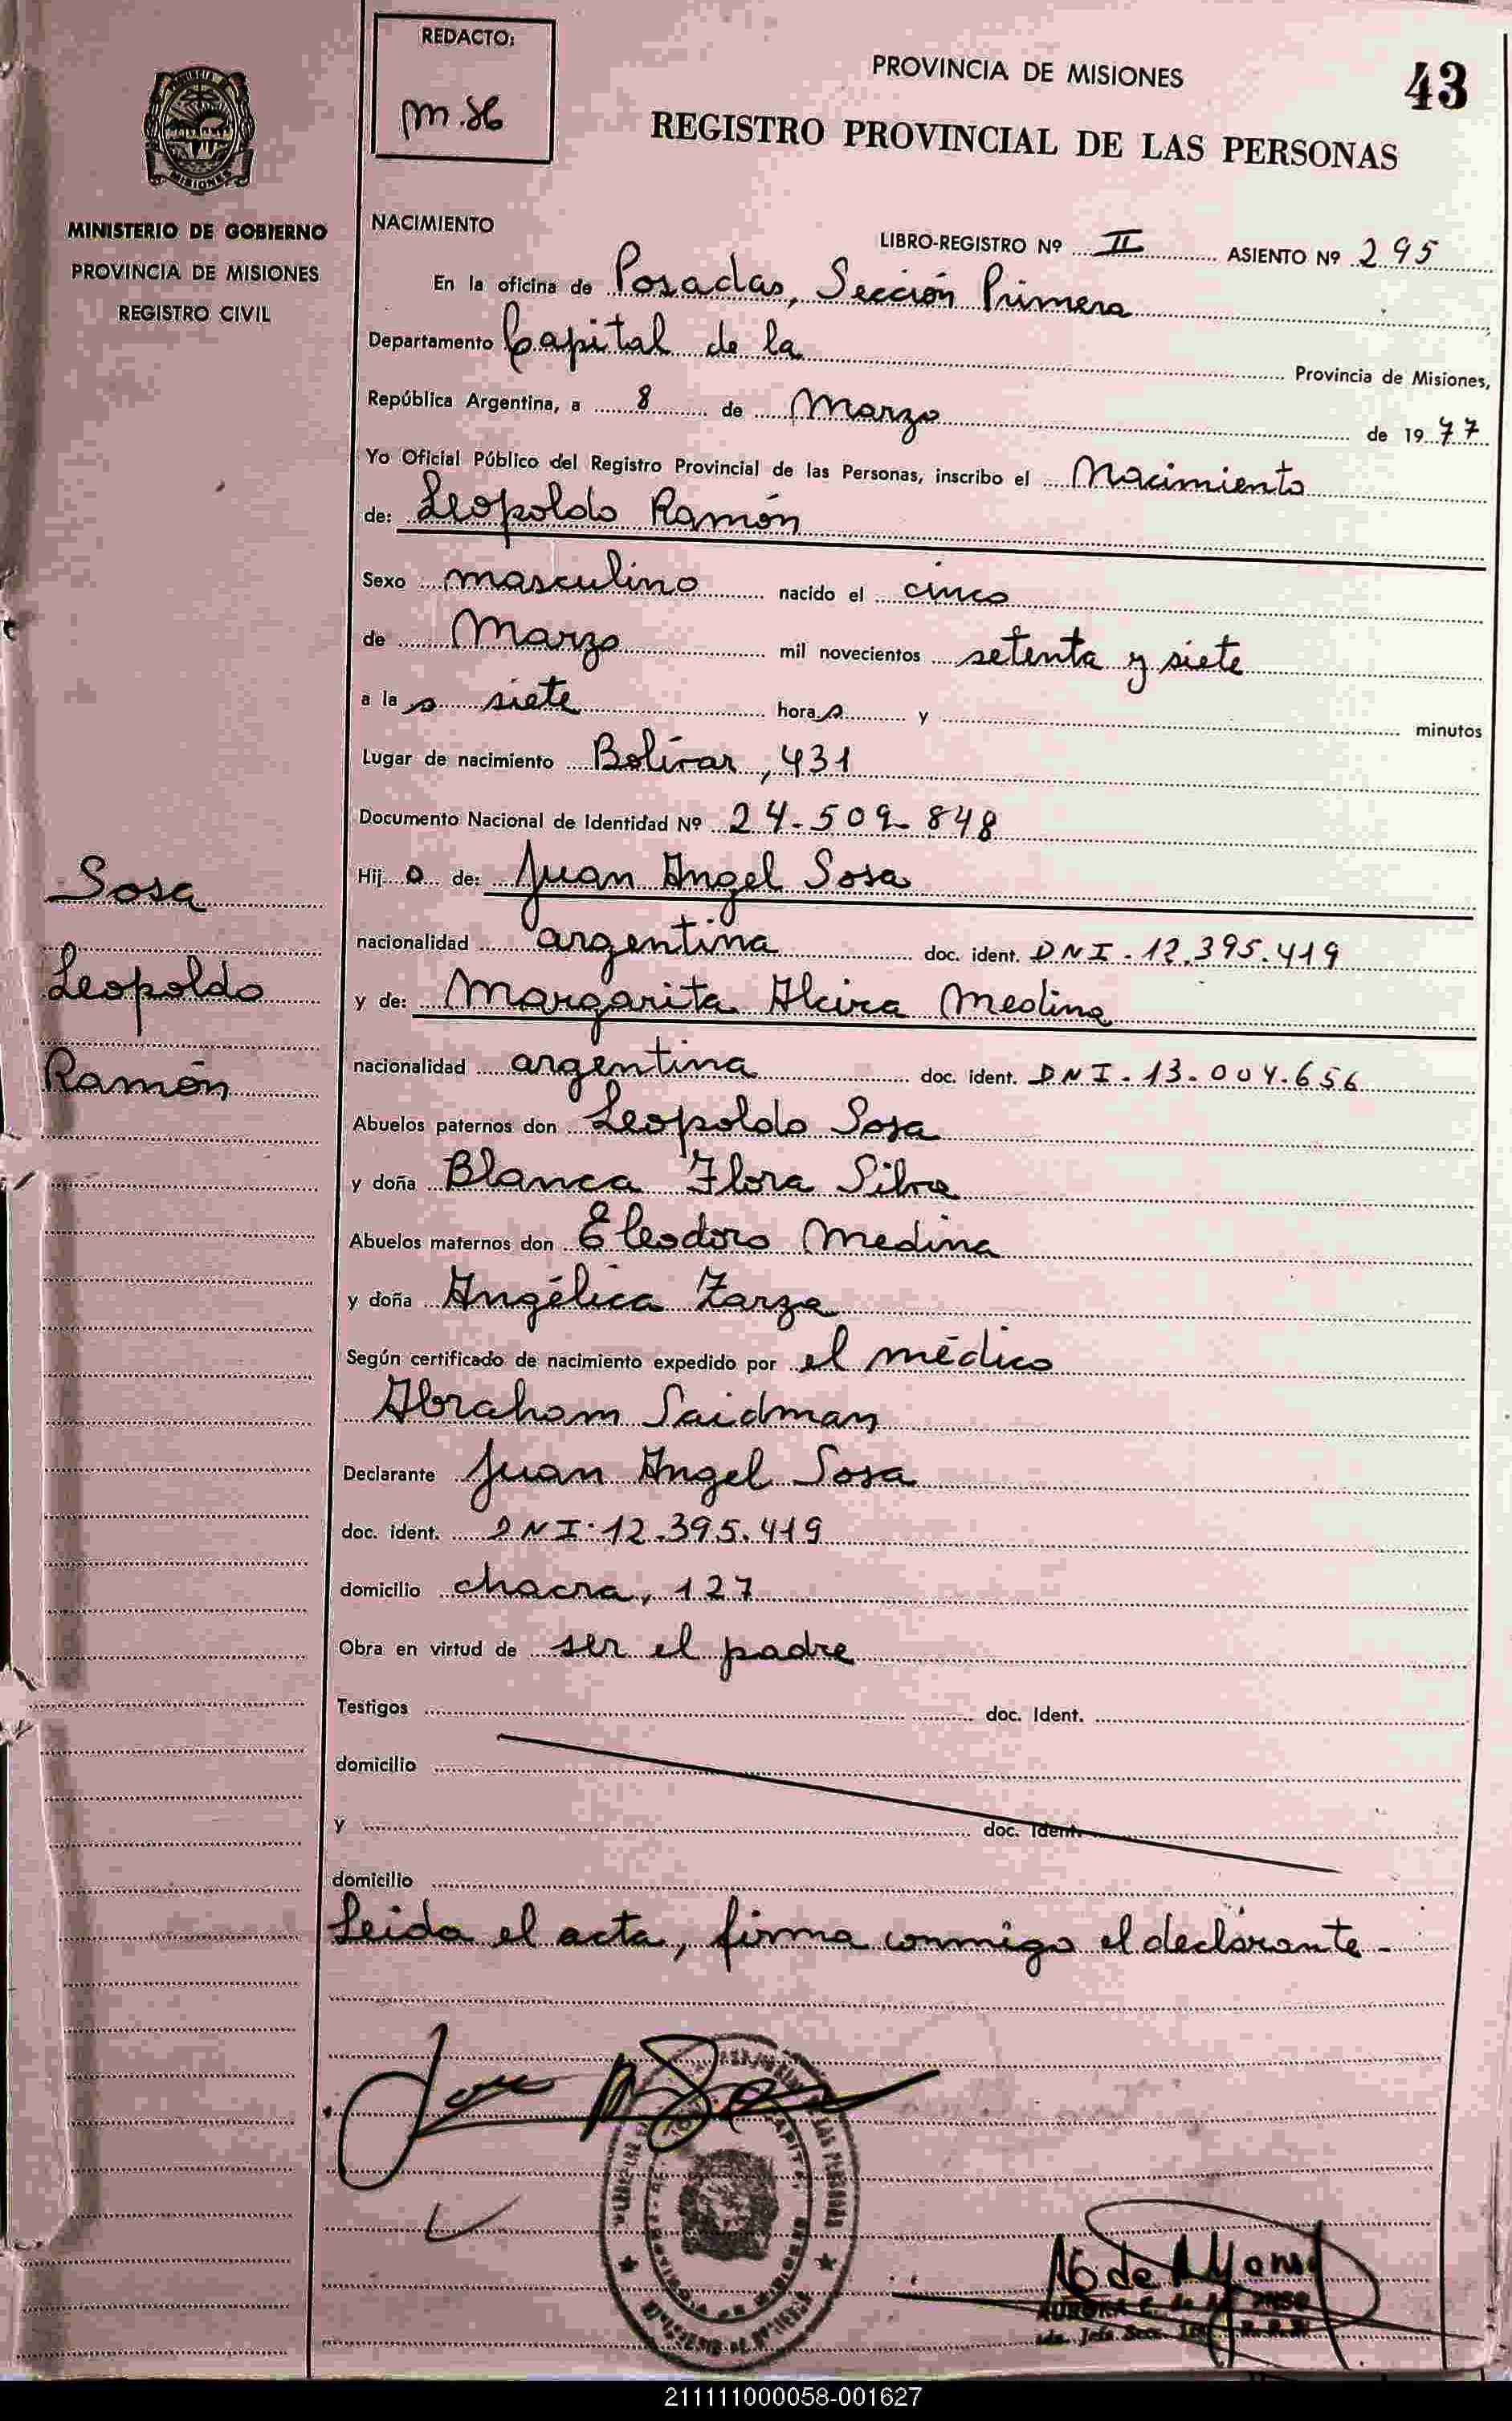 REDACTO:
PROVINCIA DE MISIONES
43
REGISTRO PROVINCIAL DE LAS PERSONAS
MISIONES
MINISTERIO DE GOBIERNO
PROVINCIA DE MISIONES
REGISTRO CIVIL
NACIMIENTO
LIBRO-REGISTRO Nº II ASIENTO Nº 295
En la oficina de Posadas, Sección Primera
Departamento Capital de la Provincia de Misiones,
República Argentina, a 8 de Marzo de 1977
Yo Oficial Público del Registro Provincial de las Personas, inscribo el Nacimiento
de: Leopoldo Ramón
Sexo masculino nacido el cinco
de Marzo mil novecientos setenta y siete
a la s siete hora s y minutos
Lugar de nacimiento Bolívar, 431
Documento Nacional de Identidad Nº 24-509-848
Hij o de: Juan Angel Sosa
nacionalidad argentina doc. ident. DNI. 12.395.419
y de: Margarita Alcira Medina
nacionalidad argentina doc. ident. DNI. 13.004.656
Abuelos paternos don Leopoldo Sosa
y doña Blanca Flora Silva
Abuelos maternos don Eleodoro Medina
y doña Angélica Zarza
Según certificado de nacimiento expedido por el médico
Abraham Saidman
Declarante Juan Angel Sosa
doc. ident. DNI. 12.395.419
domicilio chacra, 127
Obra en virtud de ser el padre
Testigos doc. Ident.
domicilio
y doc. Ident.
domicilio
Leida el acta, firma conmigo el declarante.-
Sosa
Leopoldo
Ramón
211111000058-001627